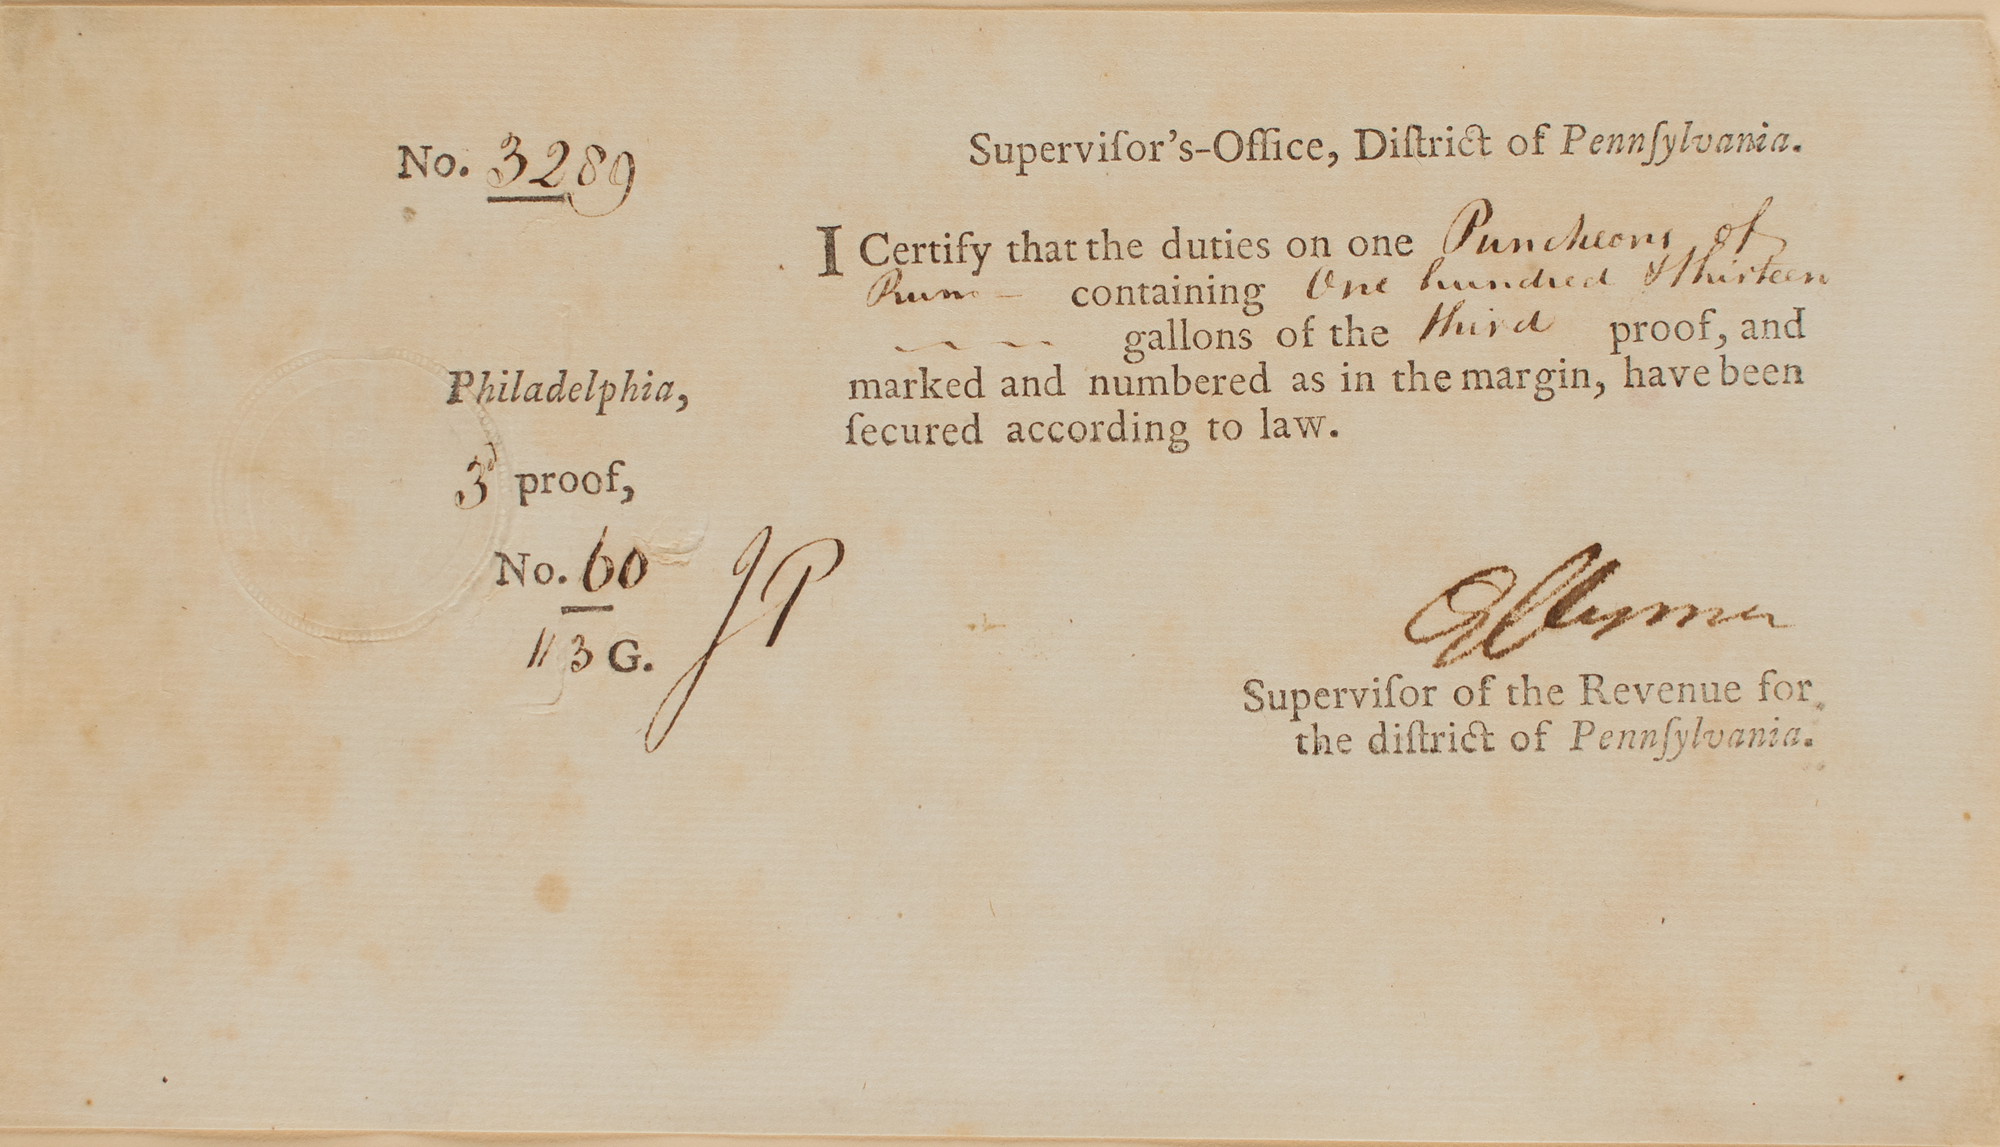 No. 3289
Superviſor's-Office, Diſtrict of Pennſylvania.
I Certify that the duties on one Puncheons of
Rum containing One hundred & thirteen
gallons of the third proof, and
marked and numbered as in the margin, have been
ſecured according to law.
Philadelphia,
3d proof,
No. 60
113 G.
JP
GClymer
Superviſor of the Revenue for
the diſtrict of Pennſylvania.